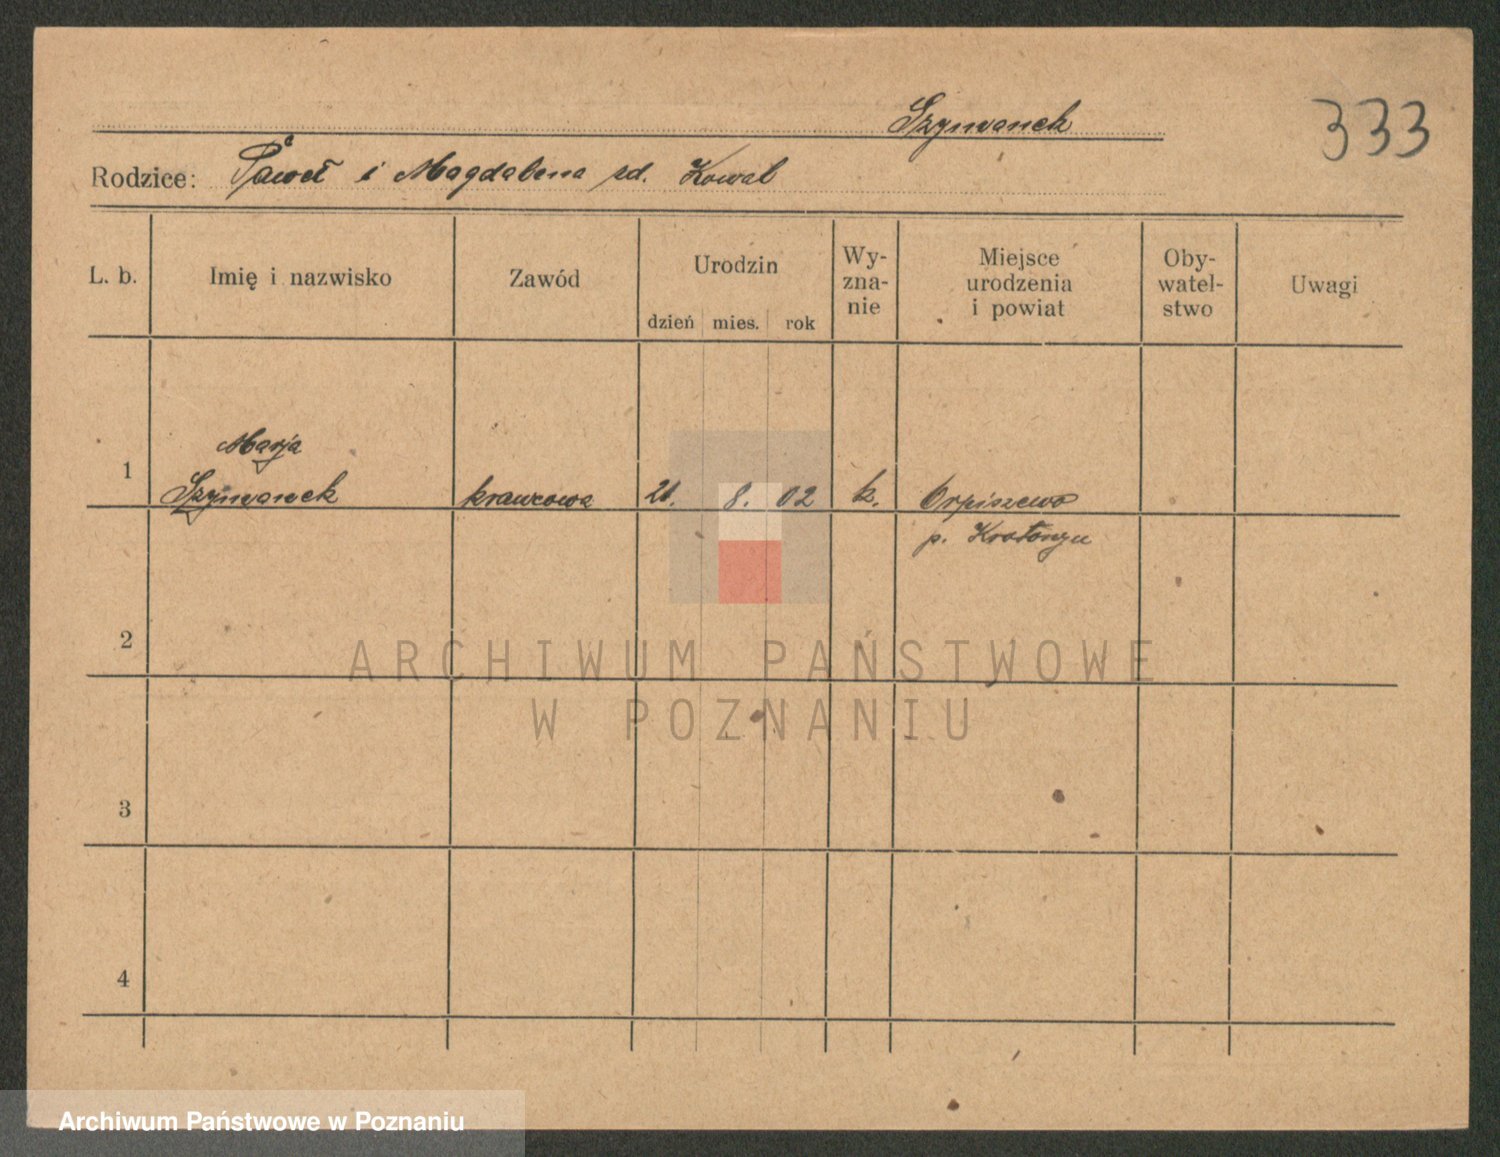 Szymanek
333
Rodzice: Paweł i Magdalena zd. Kowal
L. b. Imię i nazwisko Zawód Urodzin Wy-zna-nie Miejsce urodzenia i powiat Oby-watel-stwo Uwagi
dzień mies. rok
Marja
1 Szymanek krawcowa 21. 8. 02 k. Orpiszewo
p. Krotoszyn
2
3
4
ARCHIWUM PAŃSTWOWE
W POZNANIU
Archiwum Państwowe w Poznaniu